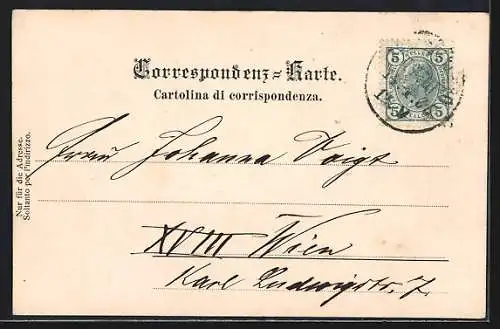 Correspondenz-Karte.
Cartolina di corrispondenza.
Nur für die Adresse.
Soltanto por l'indirizzo.
5 5
5 5
Johanna Voigt
XVIII Wien
Karl Ludwigstr. 7.